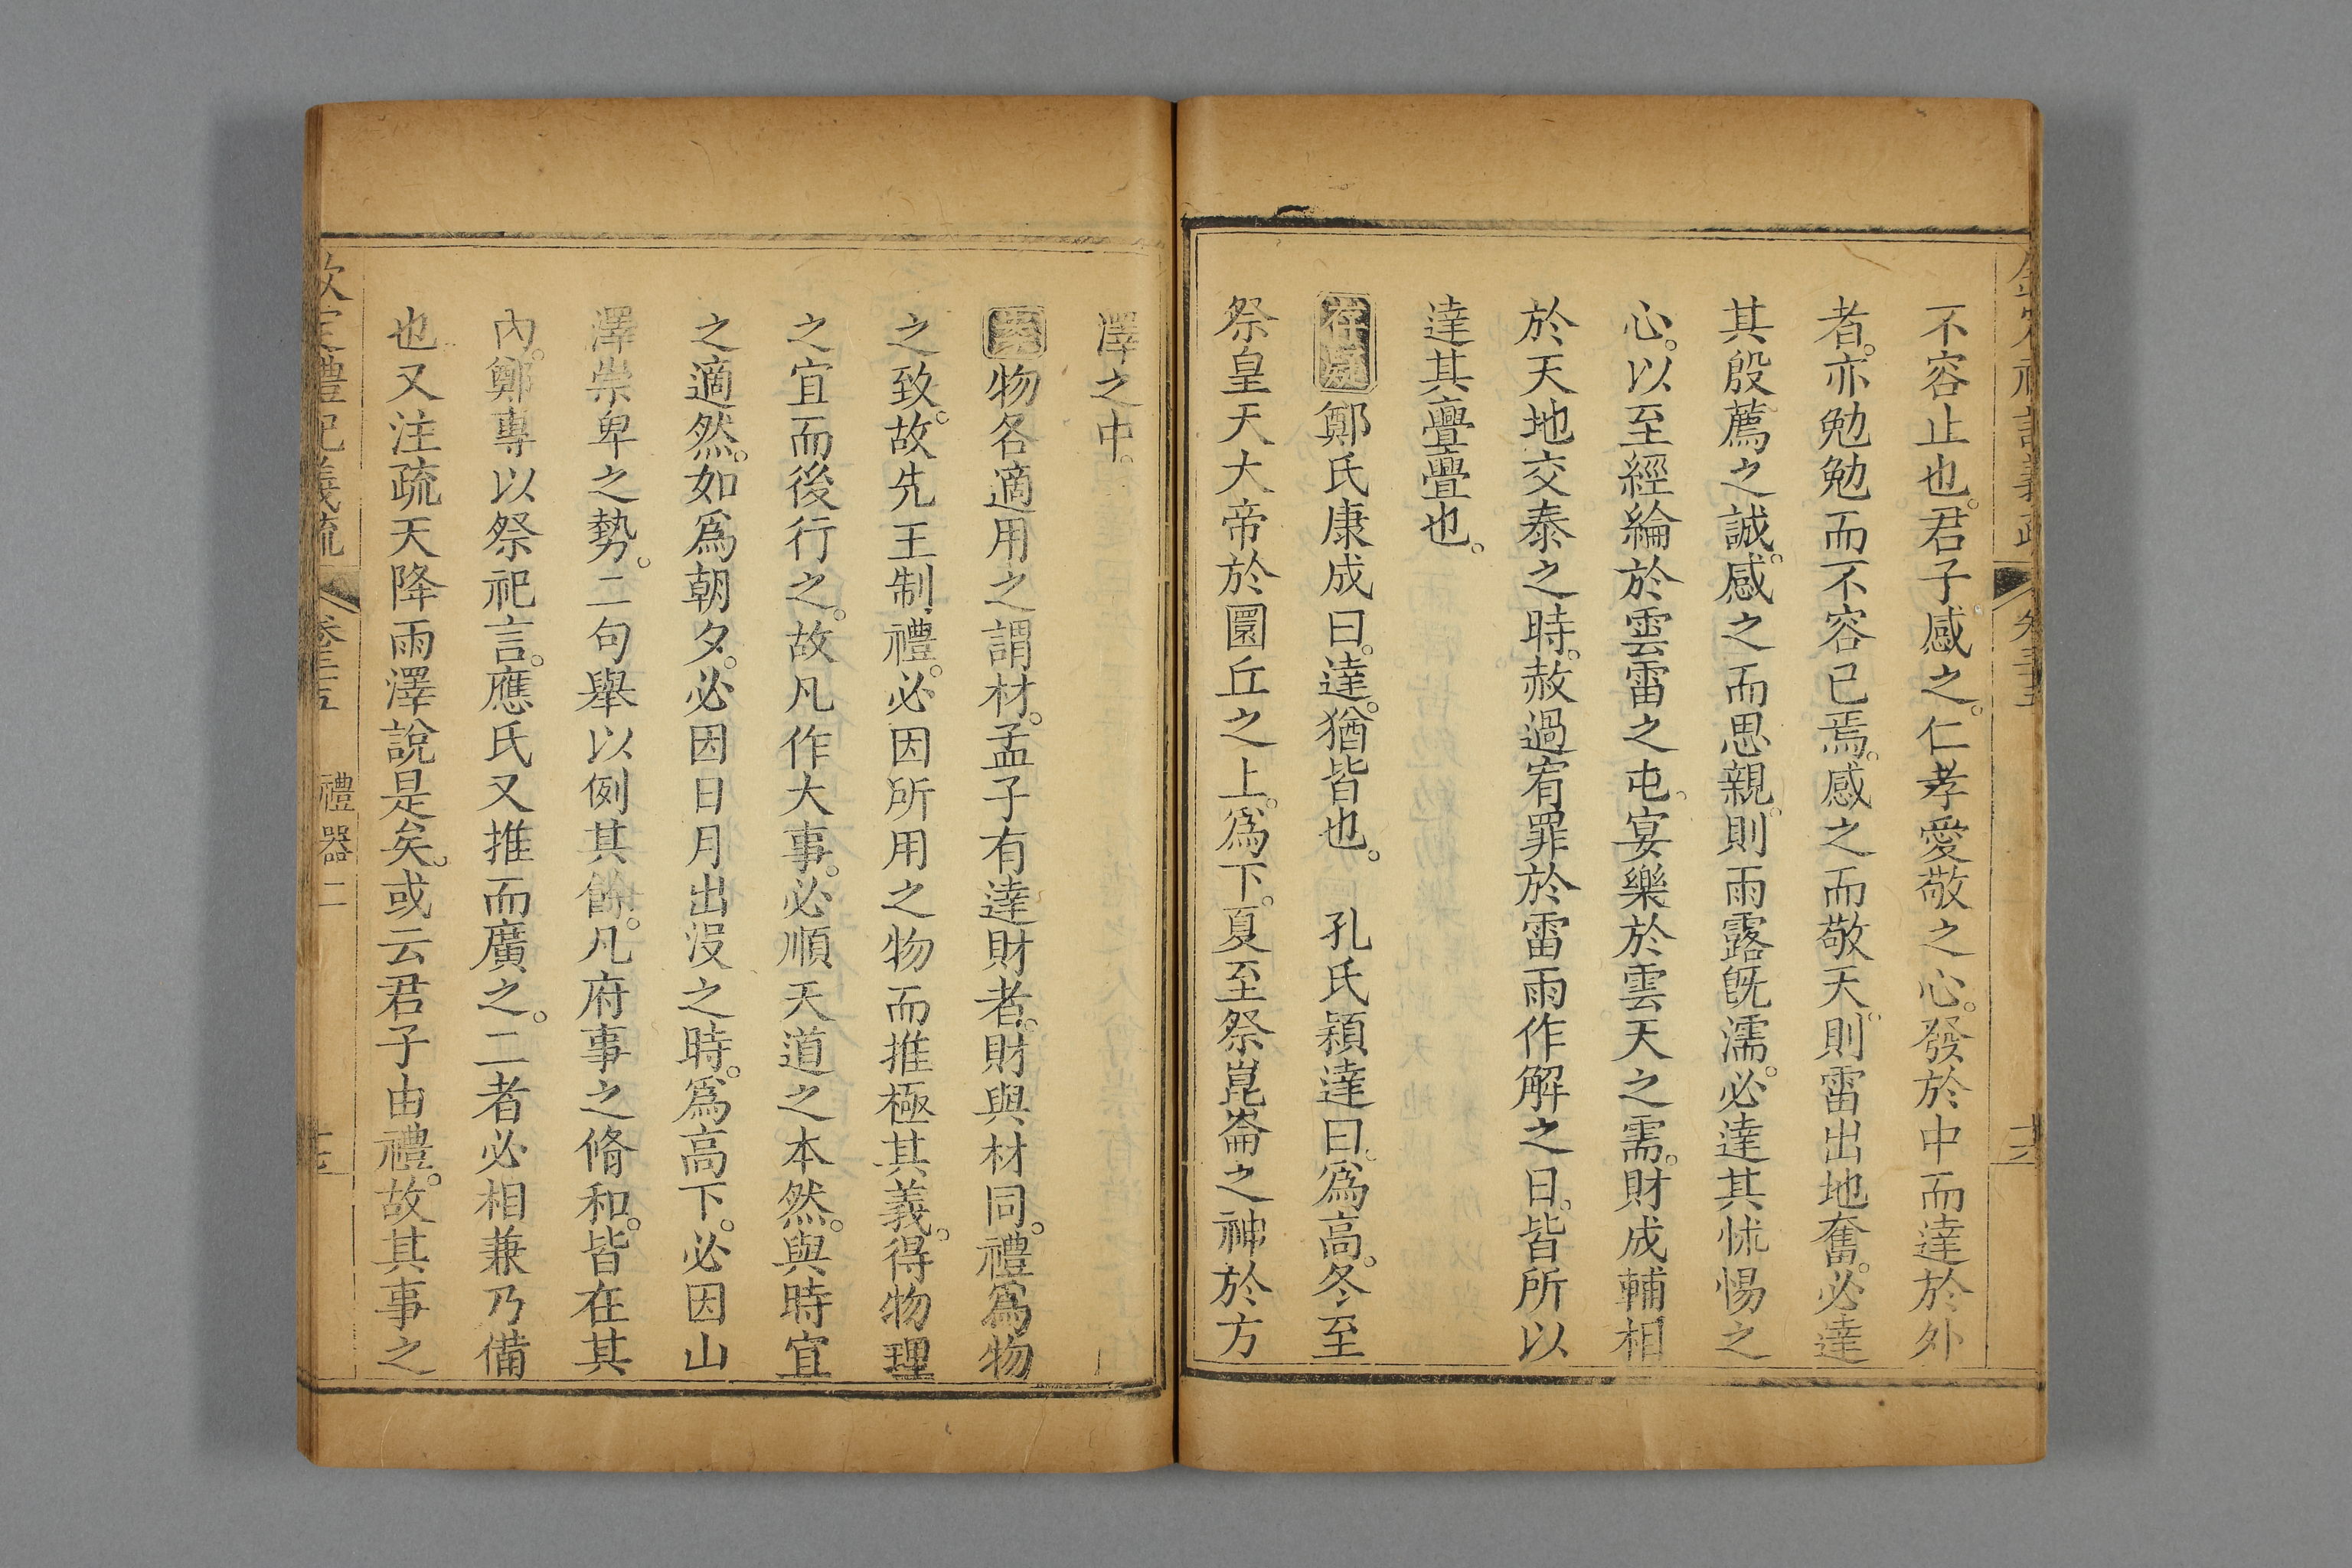 欽定禮記義疏 卷三十五 十六
不容止也。君子感之。仁孝愛敬之心。發於中而達於外
者。亦勉勉而不容已焉。感之而敬天。則雷出地奮。必達
其殷薦之誠。感之而思親。則雨露旣濡。必達其怵惕之
心。以至經綸於雲雷之屯。宴樂於雲天之需。財成輔相
於天地交泰之時。赦過宥罪於雷雨作解之日。皆所以
達其亹亹也。
存疑鄭氏康成曰。達。猶皆也。 孔氏穎達曰。爲高。冬至
祭皇天大帝於圜丘之上。爲下。夏至祭崑崙之神於方
澤之中。
案物各適用之謂材。孟子有達財者。財與材同。禮爲物
之致。故先王制禮。必因所用之物而推極其義。得物理
之宜而後行之。故凡作大事。必順天道之本然。與時宜
之適然。如爲朝夕。必因日月出沒之時。爲高下。必因山
澤崇卑之勢。二句舉以例其餘。凡府事之脩和。皆在其
內。鄭專以祭祀言。應氏又推而廣之。二者必相兼乃備
也又注疏天降雨澤說是矣。或云君子由禮。故其事之
欽定禮記義疏 卷三十五 禮器二 十七